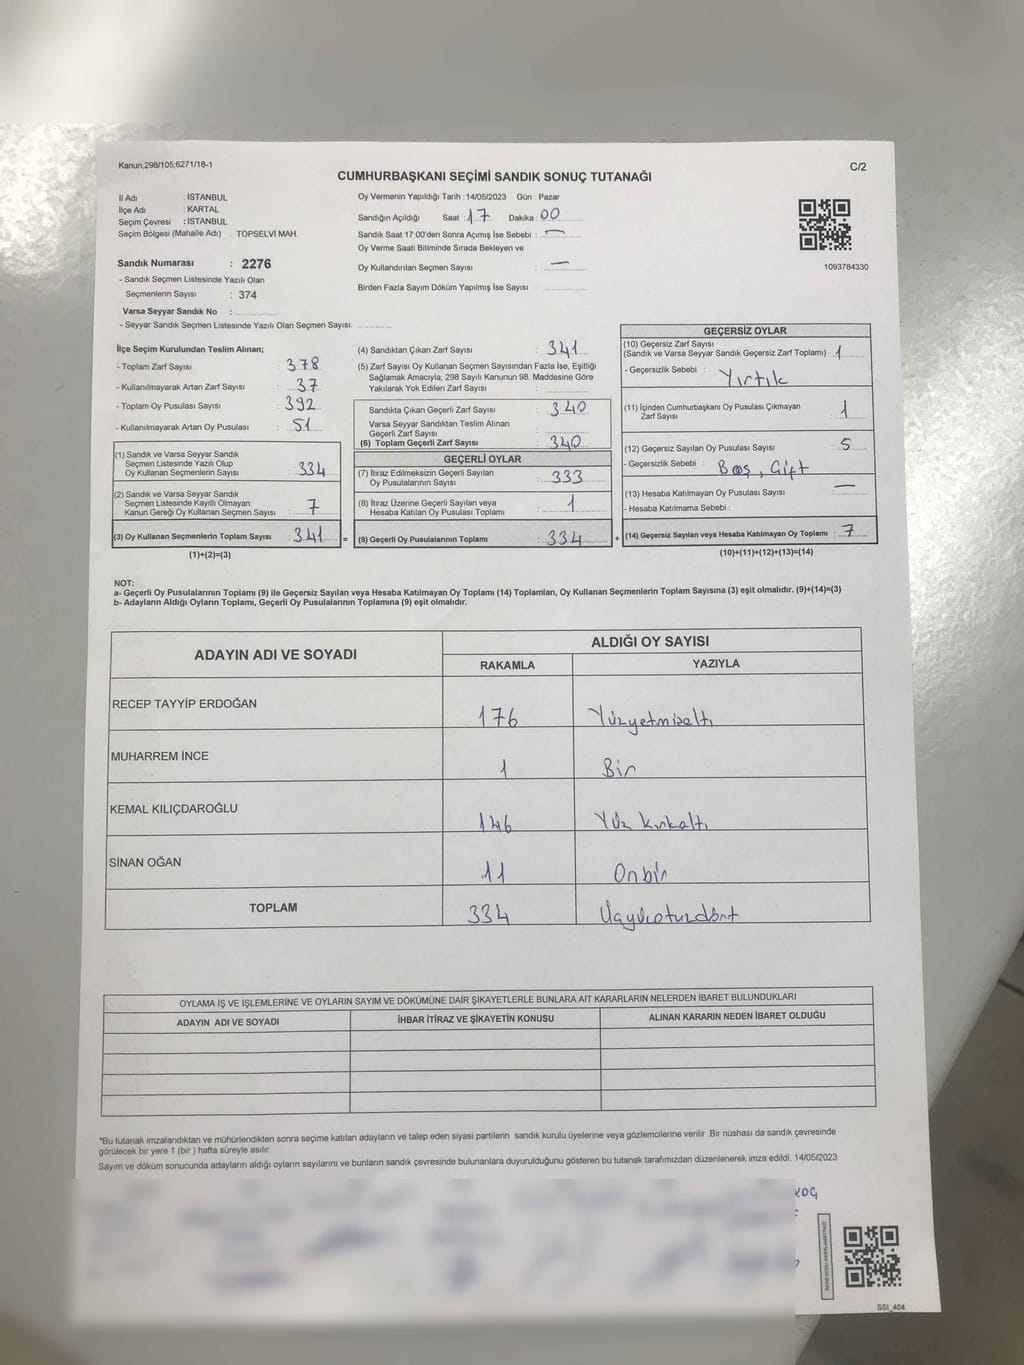 Kanun;298/105,6271/18-1
C/2
CUMHURBAŞKANI SEÇİMİ SANDIK SONUÇ TUTANAĞI
İl Adı : İSTANBUL
İlçe Adı : KARTAL
Seçim Çevresi : İSTANBUL
Seçim Bölgesi (Mahalle Adı) : TOPSELVİ MAH.
Sandık Numarası : 2276
- Sandık Seçmen Listesinde Yazılı Olan
Seçmenlerin Sayısı : 374
Varsa Seyyar Sandık No :
- Seyyar Sandık Seçmen Listesinde Yazılı Olan Seçmen Sayısı:
Oy Vermenin Yapıldığı Tarih : 14/05/2023 Gün : Pazar
Sandığın Açıldığı Saat : 17 Dakika : 00
Sandık Saat 17:00'den Sonra Açımış İse Sebebi : —
Oy Verme Saati Bitiminde Sırada Bekleyen ve
Oy Kullandırılan Seçmen Sayısı : —
Birden Fazla Sayım Döküm Yapılmış İse Sayısı :
1093784330
İlçe Seçim Kurulundan Teslim Alınan;
- Toplam Zarf Sayısı : 378
- Kullanılmayarak Artan Zarf Sayısı : 37
- Toplam Oy Pusulası Sayısı : 392
- Kullanılmayarak Artan Oy Pusulası : 51
(1) Sandık ve Varsa Seyyar Sandık
Seçmen Listesinde Yazılı Olup
Oy Kullanan Seçmenlerin Sayısı : 334
(2) Sandık ve Varsa Seyyar Sandık
Seçmen Listesinde Kayıtlı Olmayan
Kanun Gereği Oy Kullanan Seçmen Sayısı : 7
(3) Oy Kullanan Seçmenlerin Toplam Sayısı : 341 =
(1)+(2)=(3)
(4) Sandıktan Çıkan Zarf Sayısı : 341
(5) Zarf Sayısı Oy Kullanan Seçmen Sayısından Fazla İse, Eşitliği
Sağlamak Amacıyla, 298 Sayılı Kanunun 98. Maddesine Göre
Yakılarak Yok Edilen Zarf Sayısı :
Sandıkta Çıkan Geçerli Zarf Sayısı : 340
Varsa Seyyar Sandıktan Teslim Alınan
Geçerli Zarf Sayısı :
(6) Toplam Geçerli Zarf Sayısı : 340
GEÇERLİ OYLAR
(7) İtiraz Edilmeksizin Geçerli Sayılan
Oy Pusulalarının Sayısı : 333
(8) İtiraz Üzerine Geçerli Sayılan veya
Hesaba Katılan Oy Pusulası Toplamı : 1
(9) Geçerli Oy Pusulalarının Toplamı : 334 +
GEÇERSİZ OYLAR
(10) Geçersiz Zarf Sayısı
(Sandık ve Varsa Seyyar Sandık Geçersiz Zarf Toplamı) : 1
- Geçersizlik Sebebi : Yırtık
(11) İçinden Cumhurbaşkanı Oy Pusulası Çıkmayan
Zarf Sayısı : 1
(12) Geçersiz Sayılan Oy Pusulası Sayısı : 5
- Geçersizlik Sebebi : Boş, Çift
(13) Hesaba Katılmayan Oy Pusulası Sayısı : —
- Hesaba Katılmama Sebebi :
(14) Geçersiz Sayılan veya Hesaba Katılmayan Oy Toplamı : 7
(10)+(11)+(12)+(13)=(14)
NOT:
a- Geçerli Oy Pusulalarının Toplamı (9) ile Geçersiz Sayılan veya Hesaba Katılmayan Oy Toplamı (14) Toplamları, Oy Kullanan Seçmenlerin Toplam Sayısına (3) eşit olmalıdır. (9)+(14)=(3)
b- Adayların Aldığı Oyların Toplamı, Geçerli Oy Pusulalarının Toplamına (9) eşit olmalıdır.
ADAYIN ADI VE SOYADI
ALDIĞI OY SAYISI
RAKAMLA YAZIYLA
RECEP TAYYİP ERDOĞAN 176 Yüzyetmişaltı
MUHARREM İNCE 1 Bir
KEMAL KILIÇDAROĞLU 146 Yüz Kırkaltı
SİNAN OĞAN 11 Onbir
TOPLAM 334 Üçyüzotuzdört
OYLAMA İŞ VE İŞLEMLERİNE VE OYLARIN SAYIM VE DÖKÜMÜNE DAİR ŞİKAYETLERLE BUNLARA AİT KARARLARIN NELERDEN İBARET BULUNDUKLARI
ADAYIN ADI VE SOYADI İHBAR İTİRAZ VE ŞİKAYETİN KONUSU ALINAN KARARIN NEDEN İBARET OLDUĞU
*Bu tutanak imzalandıktan ve mühürlendikten sonra seçime katılan adayların ve talep eden siyasi partilerin sandık kurulu üyelerine veya gözlemcilerine verilir. Bir nüshası da sandık çevresinde
görülecek bir yere 1 (bir ) hafta süreyle asılır.
Sayım ve döküm sonucunda adayların aldığı oyların sayılarını ve bunların sandık çevresinde bulunanlara duyurulduğunu gösteren bu tutanak tarafımızdan düzenlenerek imza edildi. 14/05/2023
SSI_404